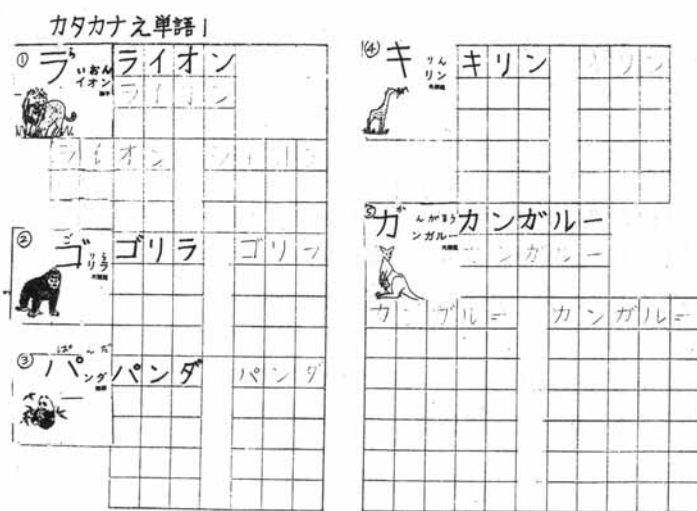 カタカナえ単語1
① ラ ら
いおん
イオン
ライオン
ライオン
ライオン ライオン
② ゴ ご
りら
リラ
ゴリラ ゴリラ
③ パ ぱんだ
ンダ
パンダ パンダ
④ キ
りん
リン
キリン キリン
⑤ カ か
んがるう
ンガルー
カンガルー
カンガルー
カンガルー カンガルー